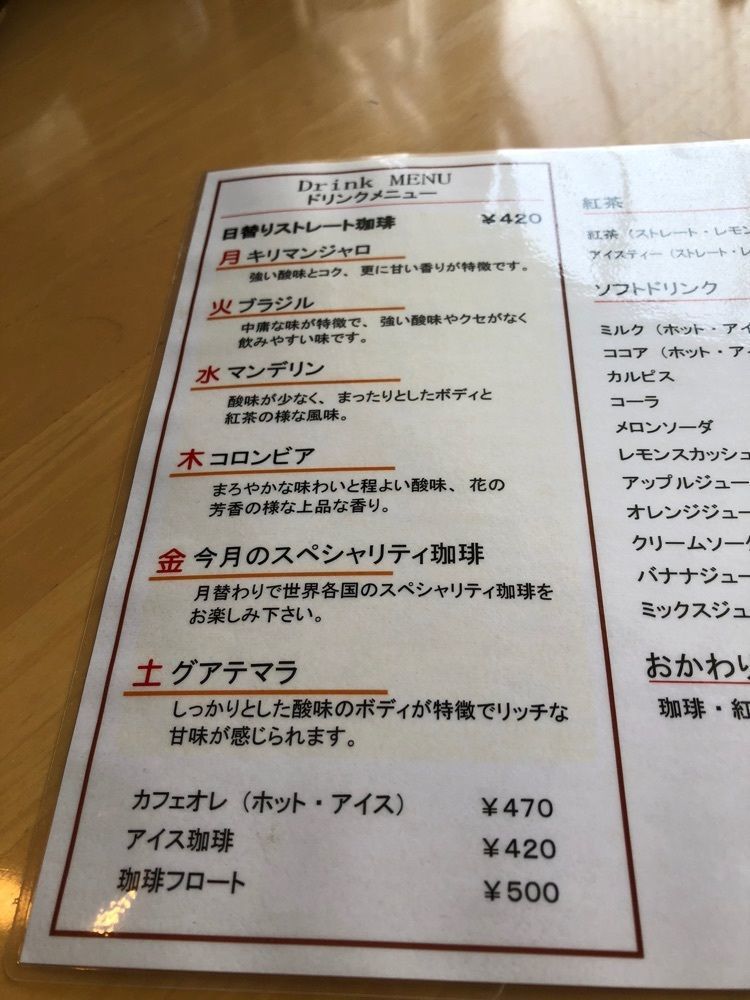 Drink MENU
ドリンクメニュー
日替りストレート珈琲 ¥420
月 キリマンジャロ
強い酸味とコク、更に甘い香りが特徴です。
火 ブラジル
中庸な味が特徴で、強い酸味やクセがなく
飲みやすい味です。
水 マンデリン
酸味が少なく、まったりとしたボディと
紅茶の様な風味。
木 コロンビア
まろやかな味わいと程よい酸味、花の
芳香の様な上品な香り。
金 今月のスペシャリティ珈琲
月替わりで世界各国のスペシャリティ珈琲を
お楽しみ下さい。
土 グアテマラ
しっかりとした酸味のボディが特徴でリッチな
甘味が感じられます。
カフェオレ（ホット・アイス） ¥470
アイス珈琲 ¥420
珈琲フロート ¥500
紅茶
紅茶（ストレート・レモン
アイスティー（ストレート・レ
ソフトドリンク
ミルク（ホット・アイ
ココア（ホット・アイ
カルピス
コーラ
メロンソーダ
レモンスカッシュ
アップルジュー
オレンジジュー
クリームソーダ
バナナジュー
ミックスジュ
おかわり
珈琲・紅